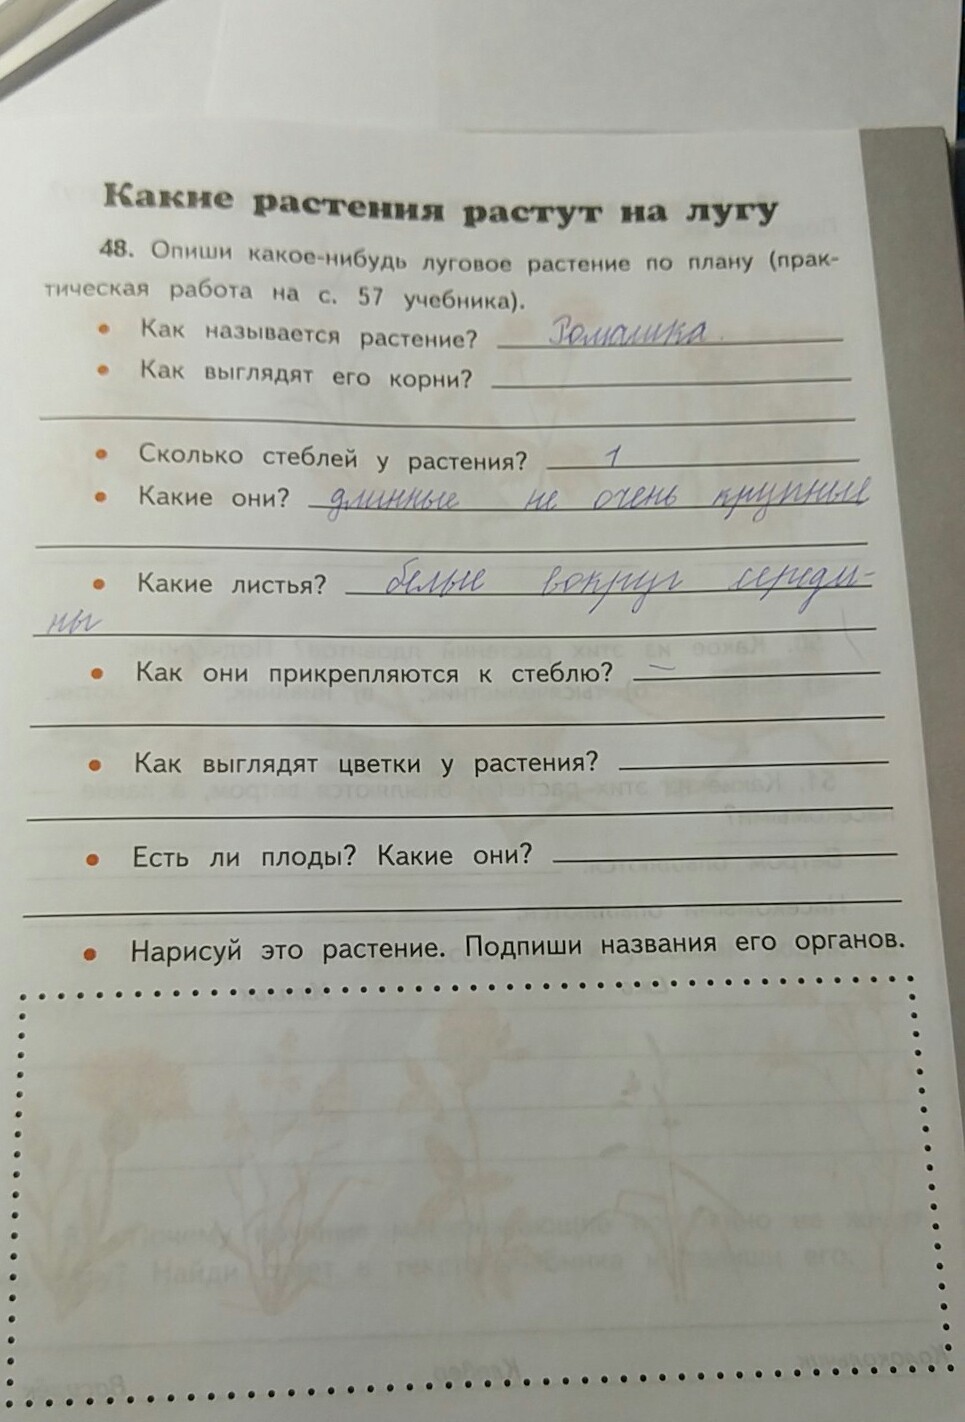 Какие растения растут на лугу
48. Опиши какое-нибудь луговое растение по плану (прак-
тическая работа на с. 57 учебника).
• Как называется растение? Ромашка.
• Как выглядят его корни?
• Сколько стеблей у растения? 1
• Какие они? длинные не очень крупные
• Какие листья? белые вокруг середи-
ны
• Как они прикрепляются к стеблю? –
• Как выглядят цветки у растения?
• Есть ли плоды? Какие они?
• Нарисуй это растение. Подпиши названия его органов.